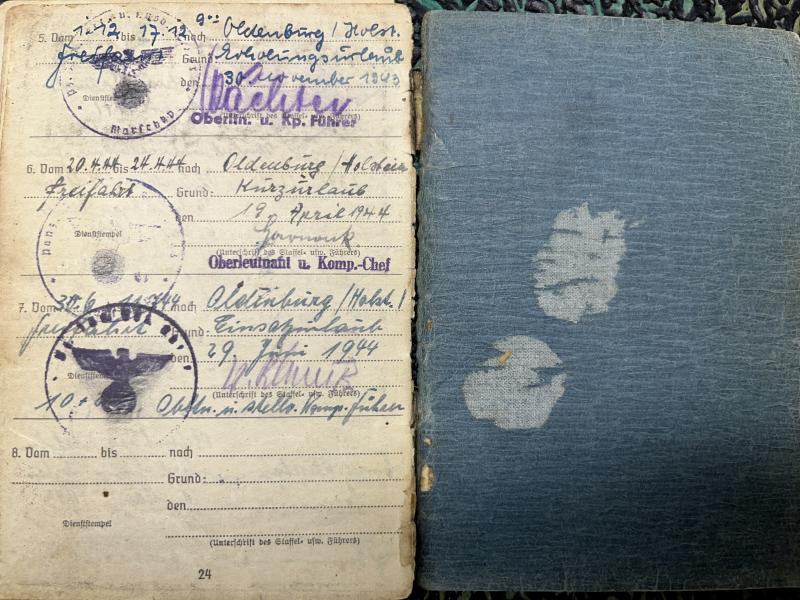 5. Vom 1.12 bis 17.12 nach Oldenburg / Holst.
Freifahrt Grund: Erholungsurlaub
den 30. November 1943
Dienststempel
Wächter
(Unterschrift des Staffel- usw. Führers)
Oberltn. u. Kp. Führer
Marschkp
6. Vom 20.4.44 bis 24.4.44 nach Oldenburg / Holstein
Freifahrt Grund: Kurzurlaub
den 19. April 1944
Dienststempel
(Unterschrift des Staffel- usw. Führers)
Oberleutnant u. Komp.-Chef
7. Vom nach Oldenburg / Holst. /
Freifahrt Grund: Einsatzurlaub
den 29. Juni 1944
Dienststempel
(Unterschrift des Staffel- usw. Führers)
Obltn. u. stellv. Komp. Führer
8. Vom bis nach
Grund:
den
Dienststempel
(Unterschrift des Staffel- usw. Führers)
24